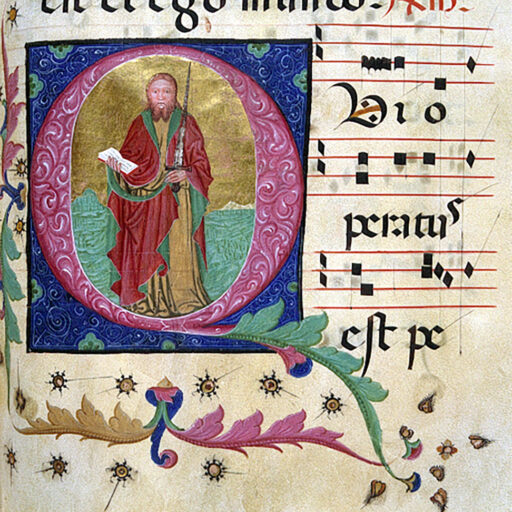 est et ego
QVi o
peratus
est pe